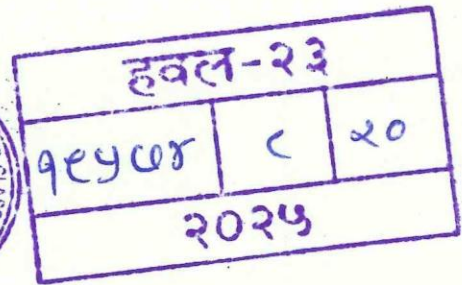 हवल-२३
१९५७४ ८ २०
२०२५